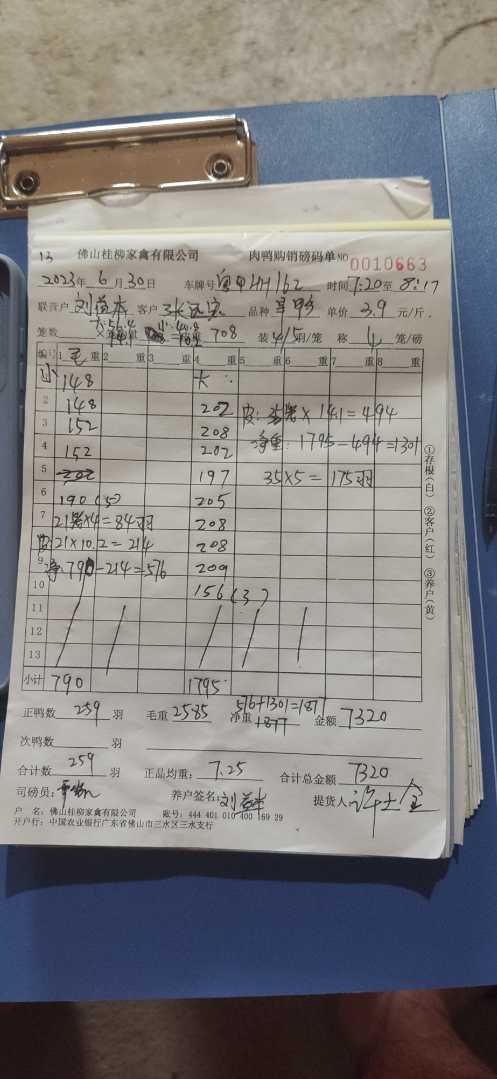 13 佛山桂柳家禽有限公司 肉鸭购销磅码单 NO 0010663
2023年 6 月 30 日 车牌号 粤 HH162 时间 7:20 至 8:17
联营户 客户 品种 单价 3.9 元/斤.
大:56.4 小:40.8
笼数 708 装 4/5 羽/笼 称 4 笼/磅
编号 1 毛 重 2 重 3 重 4 重 5 重 6 重 7 重 8 重
小 148 大:
2 148 202 皮: 35笼 × 14.1 = 494
3 152 208 净重: 1795-494=1301
4 152 202
5 202 197 35×5= 175羽
6 190 (5) 205
7 21笼×4=84羽 208
皮 21×10.2=214 208
9 净:790-214=576 209
10 156 (3)
11
12
13
小计 790 1795
576+1301=1877
正鸭数 259 羽 毛重 2585 净重 1877 金额 7320
次鸭数 羽
合计数 259 羽 正品均重: 7.25 合计总金额 7320
司磅员: 养户签名: 刘 提货人 许士金
户 名: 佛山桂柳家禽有限公司 账号: 444 401 010 400 169 29
开户行: 中国农业银行广东省佛山市三水区三水支行
①存根(白) ②客户(红) ③养户(黄)